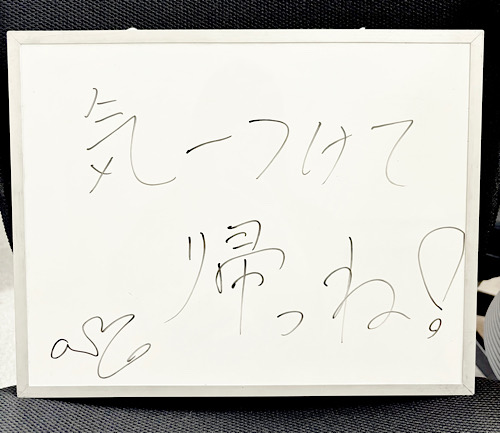 気ーつけて
帰っね!